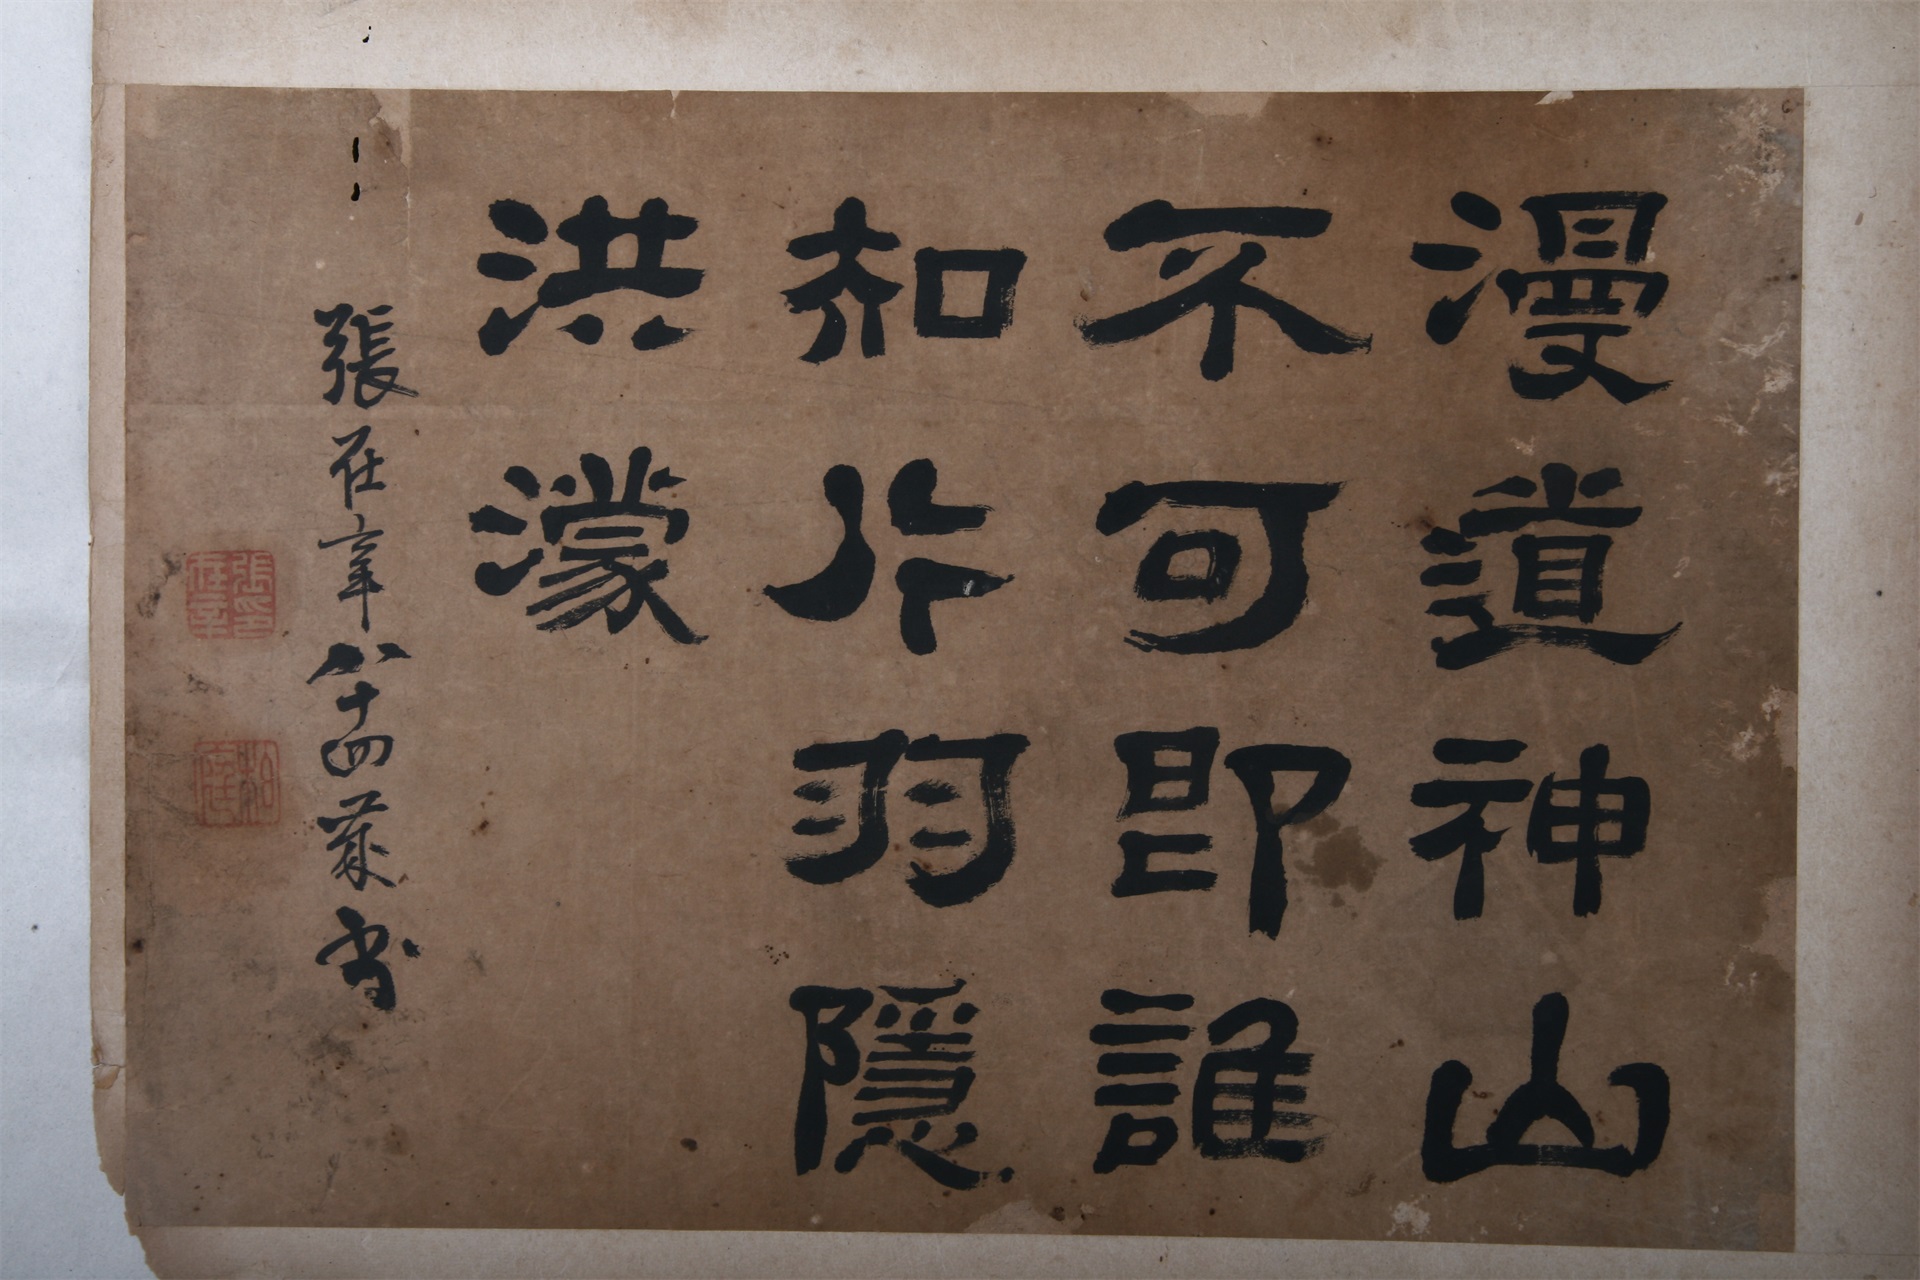 漫道神山
不可即誰
知片羽隱
洪濛
張在辛八十四歲書
張在辛印